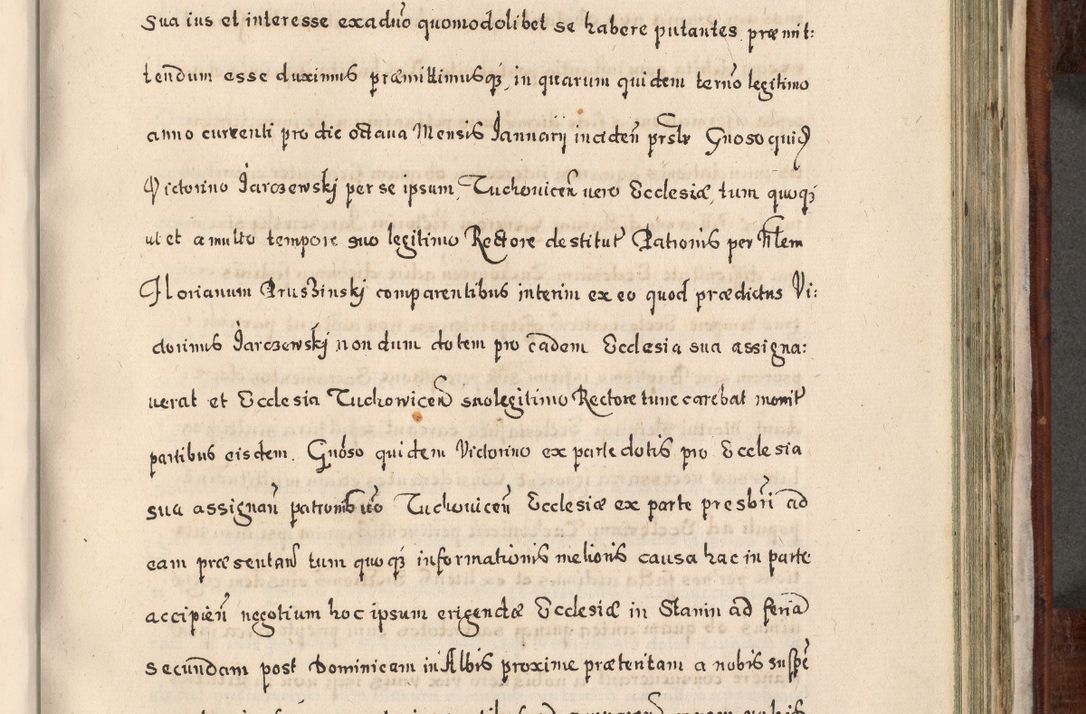 sua ius et interesse exaduo quomodolibet se habere putantes præmit:
tendum esse duximus præmittimusq, in quarum quidem terno legitimo
anno currenti pro die octaua Mensis Januarij inciden prsbr Gnoso quid
Victorino Jarczewskj per se ipsum, Tuchovicen uero Ecclesiæ, tum quoq
ut et a multo tempore suo legitimo Rectore destitut Patronis per filem
Florianum Pruszinskj comparentibus interim ex eo quod prædictus Vi:
ctorinus Jarczewskj nondum dotem pro eadem Ecclesia sua assigna:
uerat et Ecclesia Tuchowicen suo legitimo Rectore tunc carebat monit
partibus eisdem. Gnoso quidem Victorino ex parte dotis pro Ecclesia
sua assignan patronis uero Tuchovicen Ecclesiæ ex parte presbri ad
eam præsentan tum quoq informationis melioris causa hac in parte
accipien negotium hoc ipsum erigendæ Ecclesiæ in Stanin ad feria
secundam post Dominicam in Albis proxime præteritam a nobis suspe